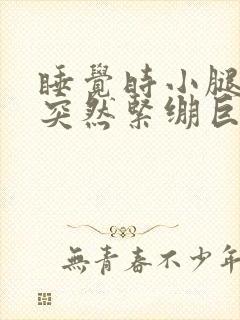 睡覺時小腿
突然緊繃巨
無青春不少年